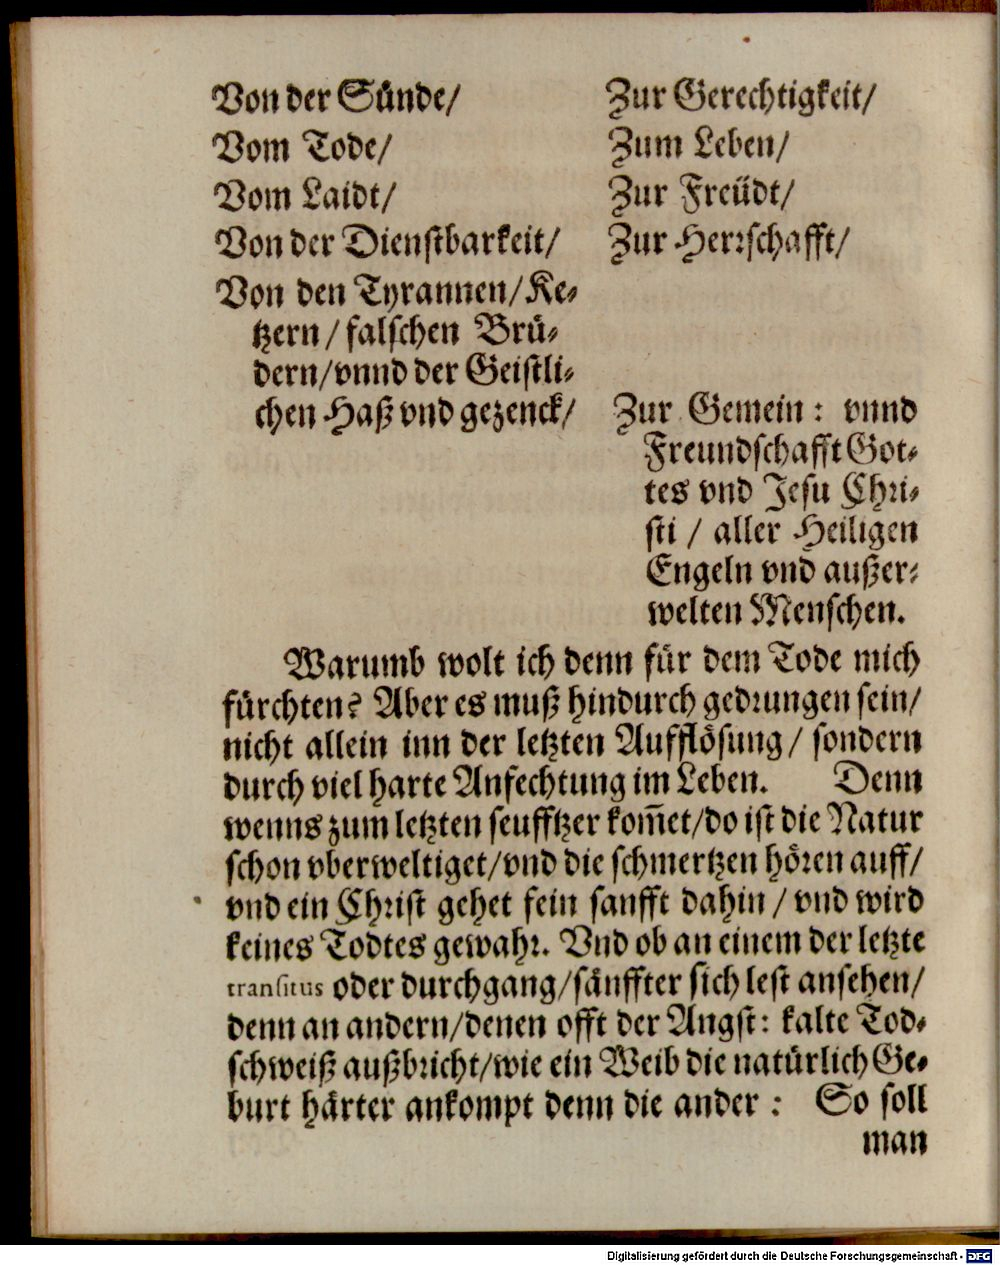 Von der Sünde/
Vom Tode/
Vom Laidt/
Von der Dienstbarkeit/
Von den Tyrannen/Ke⸗
tzern/falschen Brü⸗
dern/vnnd der Geistli⸗
chen Haß vnd gezenck/
Zur Gerechtigkeit/
Zum Leben/
Zur Freüdt/
Zur Herrschafft/
Zur Gemein: vnnd
Freundschafft Got⸗
tes vnd Jesu Chri⸗
sti / aller Heiligen
Engeln vnd außer⸗
welten Menschen.
Warumb wolt ich denn für dem Tode mich
fürchten? Aber es muß hindurch gedrungen sein/
nicht allein inn der letzten Aufflösung/ sondern
durch viel harte Anfechtung im Leben. Denn
wenns zum letzten seufftzer kom̃et/do ist die Natur
schon vberweltiget/vnd die schmertzen hören auff/
vnd ein Christ gehet fein sanfft dahin / vnd wird
keines Todtes gewahr. Vnd ob an einem der letzte
transitus oder durchgang/sänffter sich lest ansehen/
denn an andern/denen offt der Angst: kalte Tod⸗
schweiß außbricht/wie ein Weib die natürlich Ge⸗
burt härter ankompt denn die ander: So soll
man
Digitalisierung gefördert durch die Deutsche Forschungsgemeinschaft - DFG